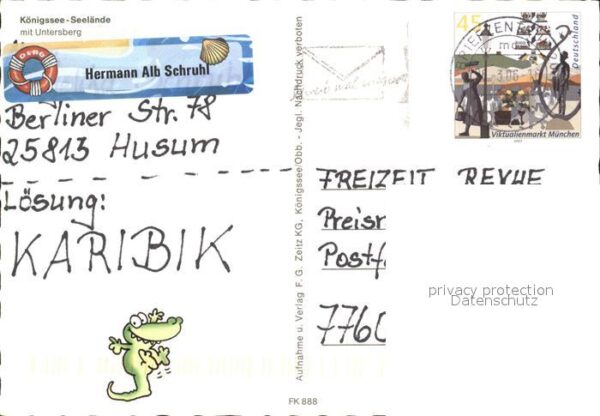 Königssee - Seelände
mit Untersberg
Hermann Alb Schruhl
Berliner Str. 78
25813 Husum
Lösung:
KARIBIK
Aufnahme u. Verlag F. G. Zeitz KG, Königssee/Obb. - Jegl. Nachdruck verboten
FK 888
45
Deutschland
Viktualienmarkt München
FREIZEIT REVUE
Preisr
Postf
7760
privacy protection
Datenschutz